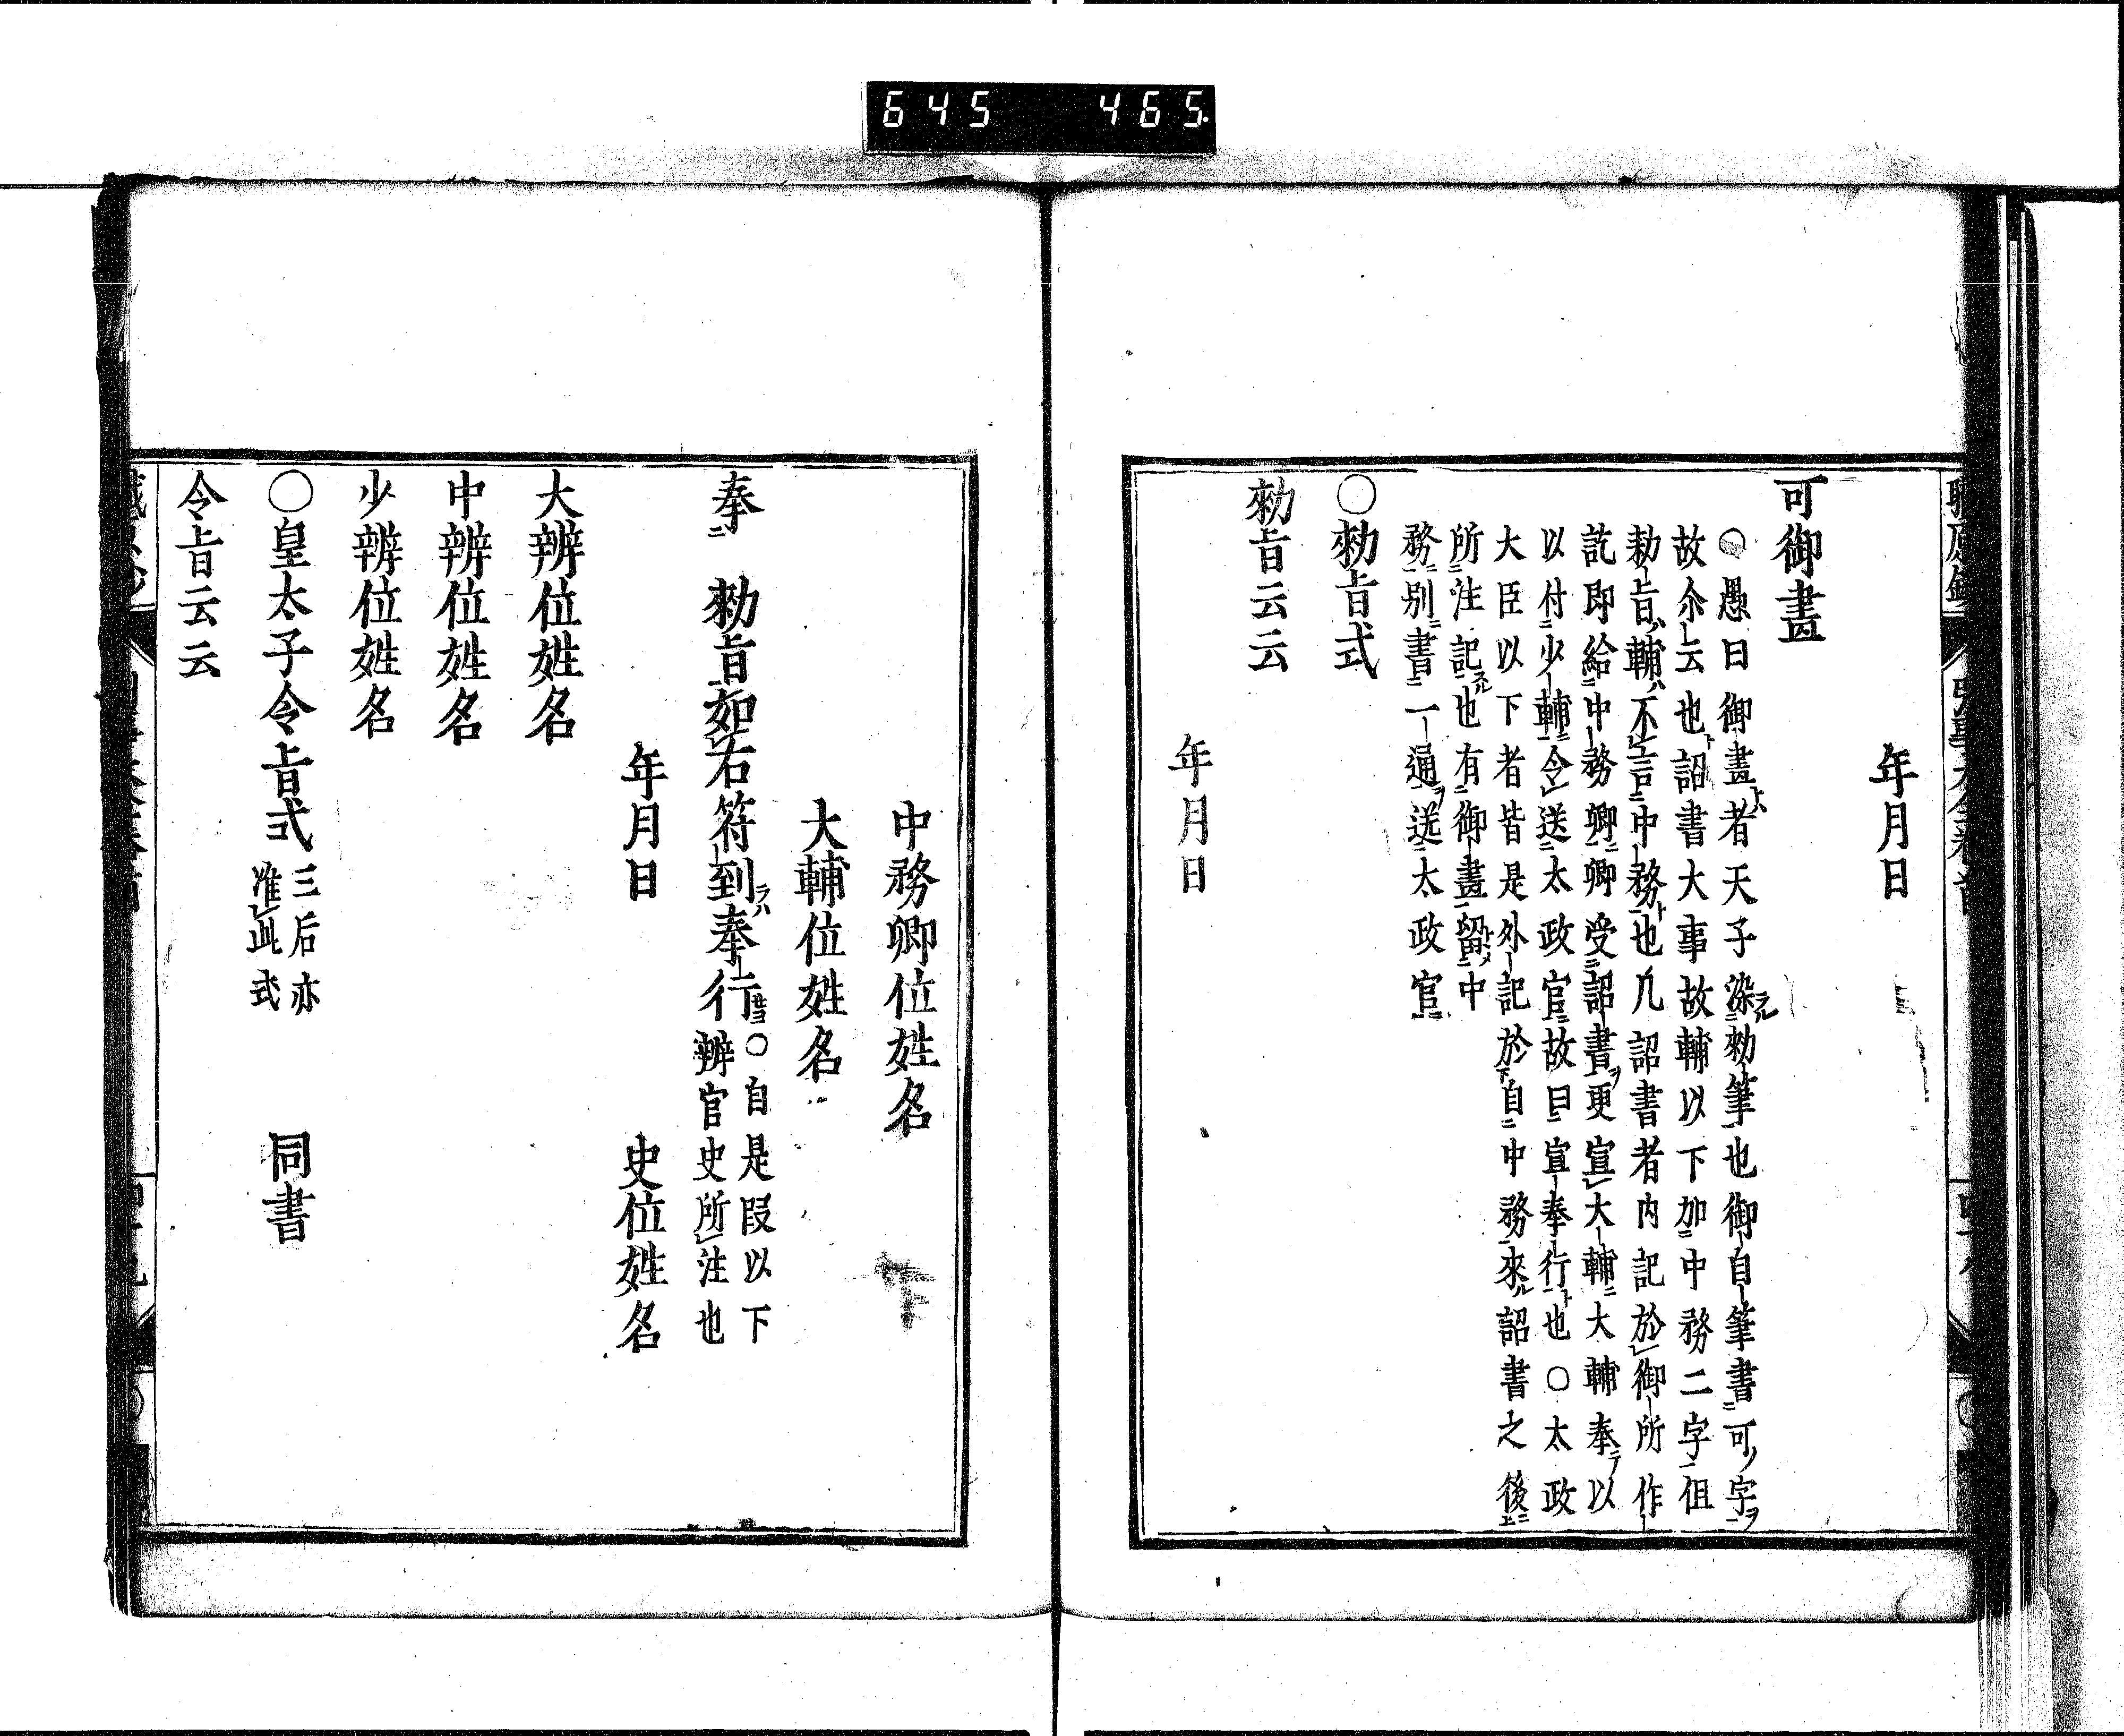 645 465
年月日
可御畫
○愚曰御畫者天子染勑筆也御自筆書可字
故尒云也詔書大事故輔以下加中務二字但
勑旨輔不言中務也凡詔書者内記於御所作
訖即給中務卿卿受詔書更宣大輔大輔奉以
以付少輔令送太政官故曰宣奉行也○太政
大臣以下者皆是外記於自中務來詔書之後
所注記也有御畫留中
務別書一通送太政官
○勑旨式
勑旨云云
年月日
中務卿位姓名
大輔位姓名
奉 勑旨如右符到奉行○自是叚以下
辨官史所注也
年月日 史位姓名
大辨位姓名
中辨位姓名
少辨位姓名
○皇太子令旨式三后亦
准此式 同書
令旨云云